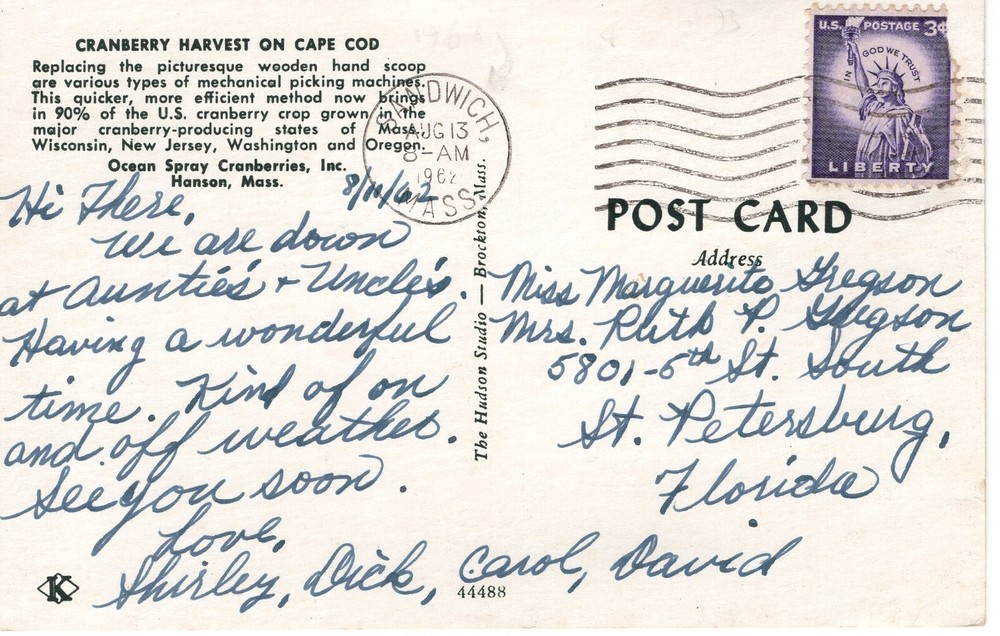 CRANBERRY HARVEST ON CAPE COD
Replacing the picturesque wooden hand scoop
are various types of mechanical picking machines.
This quicker, more efficient method now brings
in 90% of the U.S. cranberry crop grown in the
major cranberry-producing states of Mass.,
Wisconsin, New Jersey, Washington and Oregon.
Ocean Spray Cranberries, Inc.
Hanson, Mass.
8/11/62
Hi There,
We are down
at Auntie's & Uncle's.
Having a wonderful
time. Kind of on
and off weather.
See you soon.
Love,
Shirley, Dick, Carol, David
K
44488
The Hudson Studio — Brockton, Mass.
SANDWICH,
AUG 13
8-AM
1962
MASS.
U.S. POSTAGE 3¢
IN GOD WE TRUST
LIBERTY
POST CARD
Address
Miss Marguerite Gregson
Mrs. Ruth P. Gregson
5801-5th St. South
St. Petersburg,
Florida